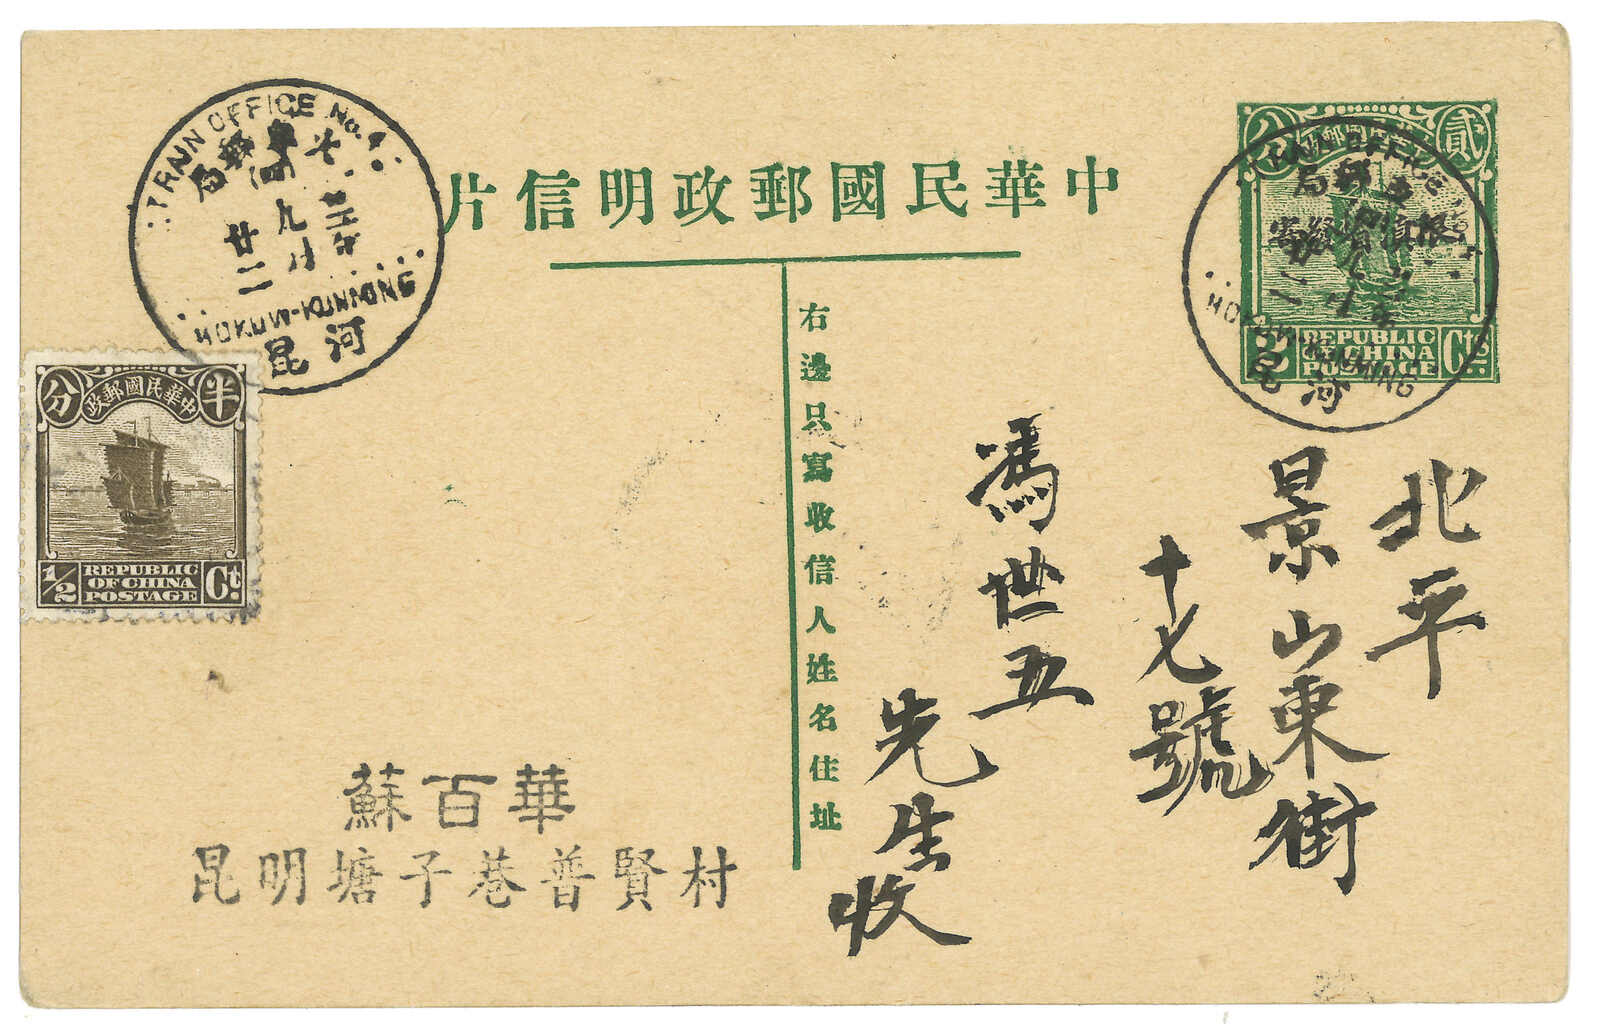 中華民國郵政明信片
右邊只寫收信人姓名住址
TRAIN OFFICE No. 4
火車郵局
(四)
九月
廿二
HOKOW-KUNMING
河昆
貳分
限滇省貼用
2 REPUBLIC OF CHINA POSTAGE Cts.
TRAIN OFFICE
HOKOW-KUNMING
河昆
半分
中華民國郵政
1/2 REPUBLIC OF CHINA POSTAGE Ct.
北平
景山東街
十七號
馮世五
先生收
蘇百華
昆明塘子巷普賢村